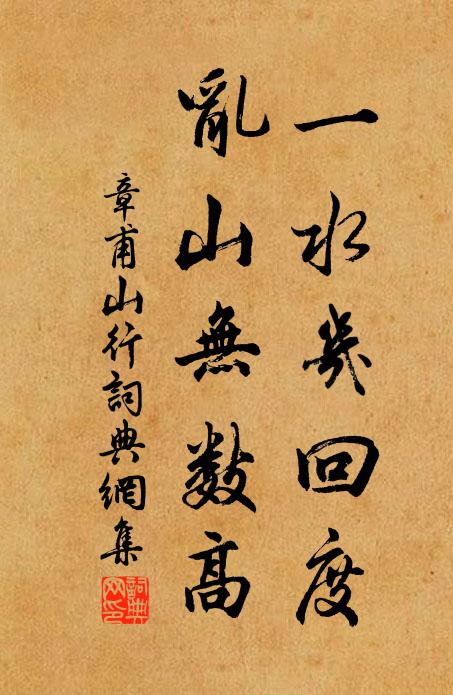 一水幾回度
亂山無數高
章甫山行詞典網集
詞典網印